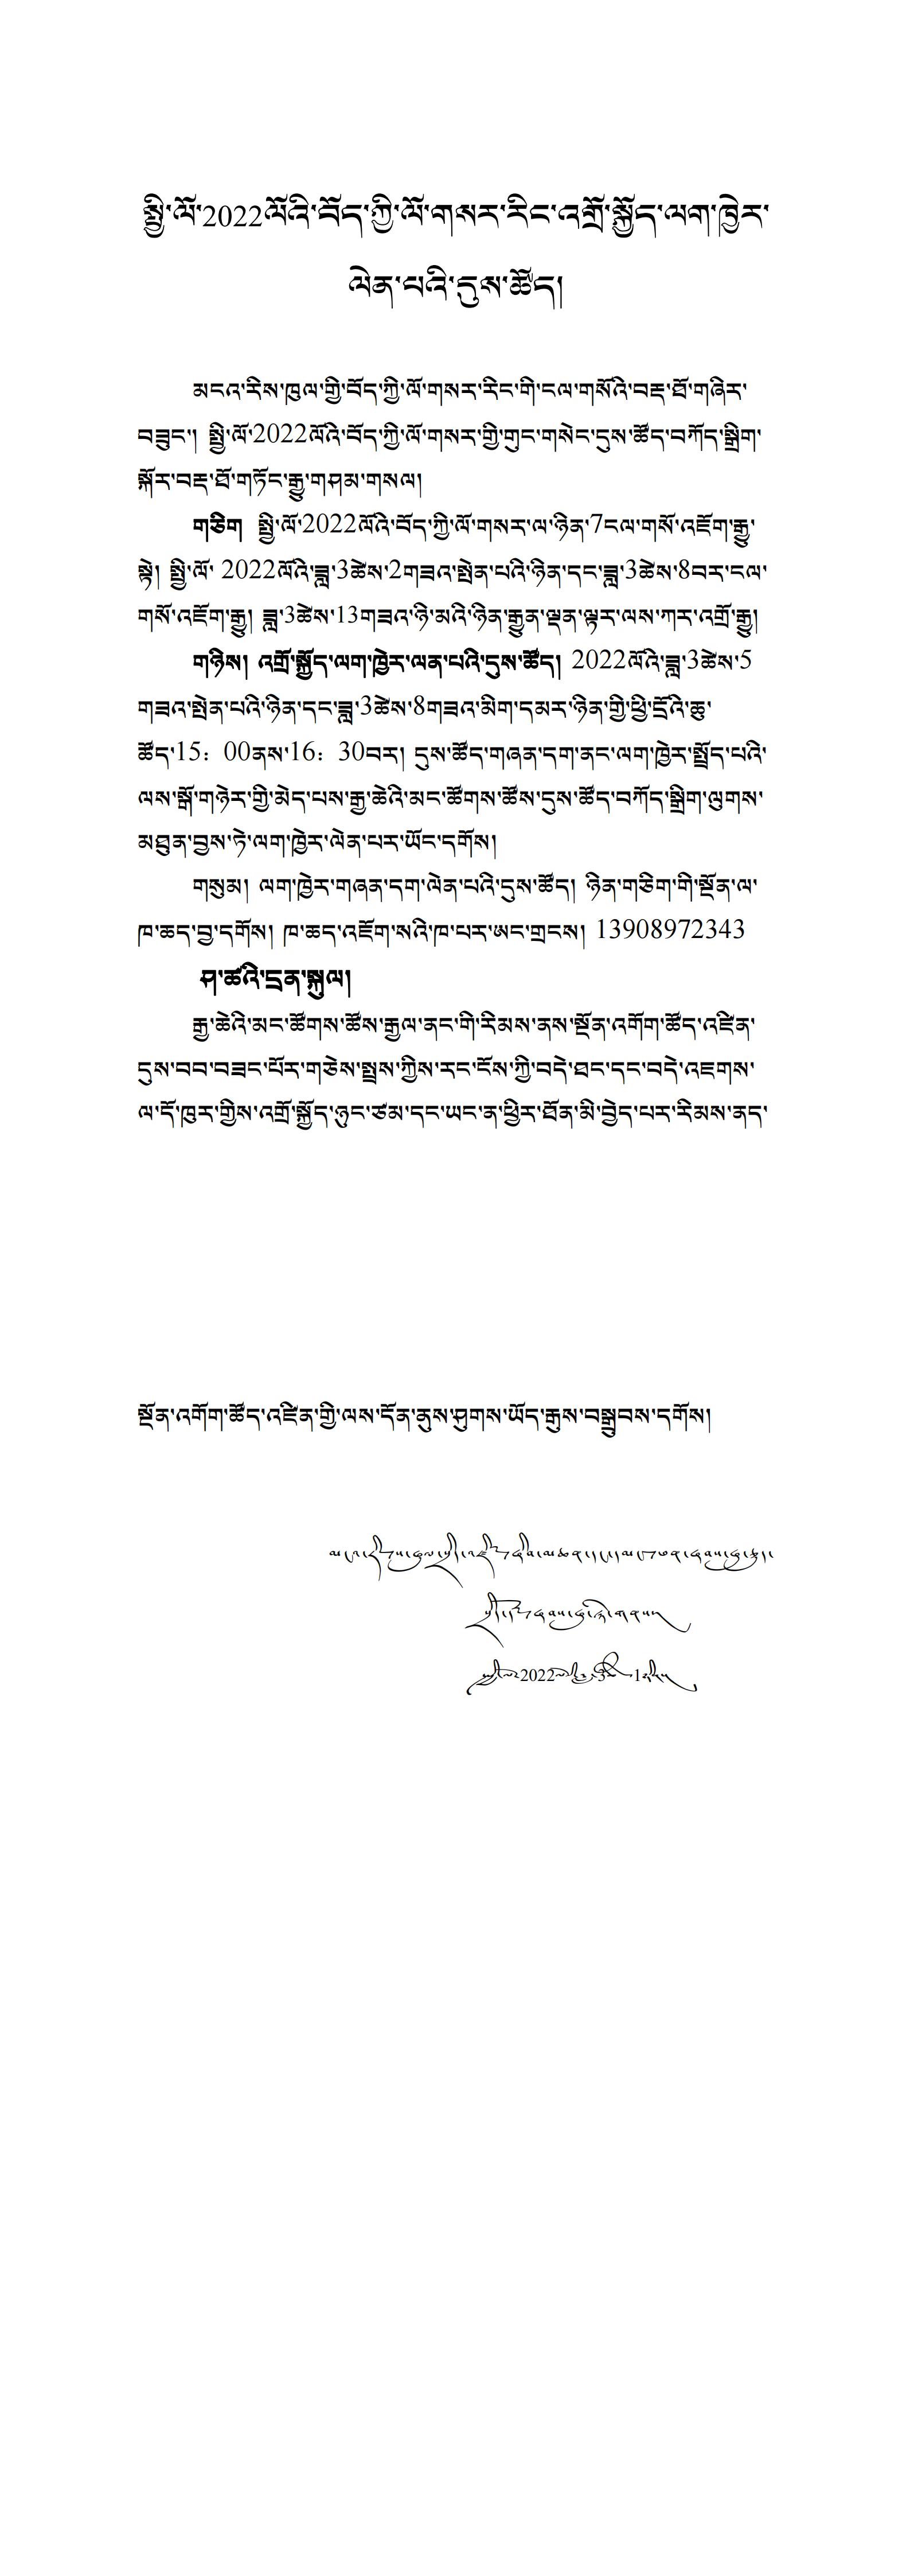 སྤྱི་ལོ་2022ལོའི་བོད་ཀྱི་ལོ་གསར་རིང་འགྲོ་སྐྱོད་ལག་ཁྱེར་
ལེན་པའི་དུས་ཚོད།
མངའ་རིས་ཁུལ་གྱི་བོད་ཀྱི་ལོ་གསར་རིང་གི་ངལ་གསོའི་བརྡ་ཐོ་གཞིར་
བཟུང་། སྤྱི་ལོ་2022ལོའི་བོད་ཀྱི་ལོ་གསར་གྱི་གུང་གསེང་དུས་ཚོད་བཀོད་སྒྲིག་
སྐོར་བརྡ་ཐོ་གཏོང་རྒྱུ་གཤམ་གསལ།
གཅིག སྤྱི་ལོ་2022ལོའི་བོད་ཀྱི་ལོ་གསར་ལ་ཉིན་7ངལ་གསོ་འཇོག་རྒྱུ་
སྟེ། སྤྱི་ལོ་ 2022ལོའི་ཟླ་3ཚེས་2གཟའ་སྤེན་པའི་ཉིན་དང་ཟླ་3ཚེས་8བར་ངལ་
གསོ་འཇོག་རྒྱུ། ཟླ་3ཚེས་13གཟའ་ཉི་མའི་ཉིན་རྒྱུན་ལྡན་ལྟར་ལས་ཀར་འགྲོ་རྒྱུ།
གཉིས། འགྲོ་སྐྱོད་ལག་ཁྱེར་ལན་པའི་དུས་ཚོད། 2022ལོའི་ཟླ་3ཚེས་5
གཟའ་སྤེན་པའི་ཉིན་དང་ཟླ་3ཚེས་8གཟའ་མིག་དམར་ཉིན་གྱི་ཕྱི་དྲོའི་ཆུ་
ཚོད་15：00ནས་16：30བར། དུས་ཚོད་གཞན་དག་ནང་ལག་ཁྱེར་སྤྲོད་པའི་
ལས་སྒོ་གཉེར་གྱི་མེད་པས་རྒྱ་ཆེའི་མང་ཚོགས་ཚོས་དུས་ཚོད་བཀོད་སྒྲིག་ལུགས་
མཐུན་བྱས་ཏེ་ལག་ཁྱེར་ལེན་པར་ཡོང་དགོས།
གསུམ། ལག་ཁྱེར་གཞན་དག་ལེན་པའི་དུས་ཚོད། ཉིན་གཅིག་གི་སྔོན་ལ་
ཁ་ཆད་བྱ་དགོས། ཁ་ཆད་འཇོག་སའི་ཁ་པར་ཨང་གྲངས། 13908972343
ཤ་ཚའི་དྲན་སྐུལ།
རྒྱ་ཆེའི་མང་ཚོགས་ཚོས་རྒྱལ་ནང་གི་རིམས་ནས་སྔོན་འགོག་ཚོད་འཛིན་
དུས་བབ་བཟང་པོར་གཅེས་སྤྲས་ཀྱིས་རང་ངོས་ཀྱི་བདེ་ཐང་དང་བདེ་འཇགས་
ལ་དོ་ཁུར་གྱིས་འགྲོ་སྐྱོད་ཉུང་ཙམ་དང་ཡང་ན་ཕྱིར་ཐོན་མི་བྱེད་པར་རིམས་ནད་
སྔོན་འགོག་ཚོད་འཛིན་གྱི་ལས་དོན་ནུས་ཤུགས་ཡོད་རྒུས་བསྒྲུབས་དགོས།